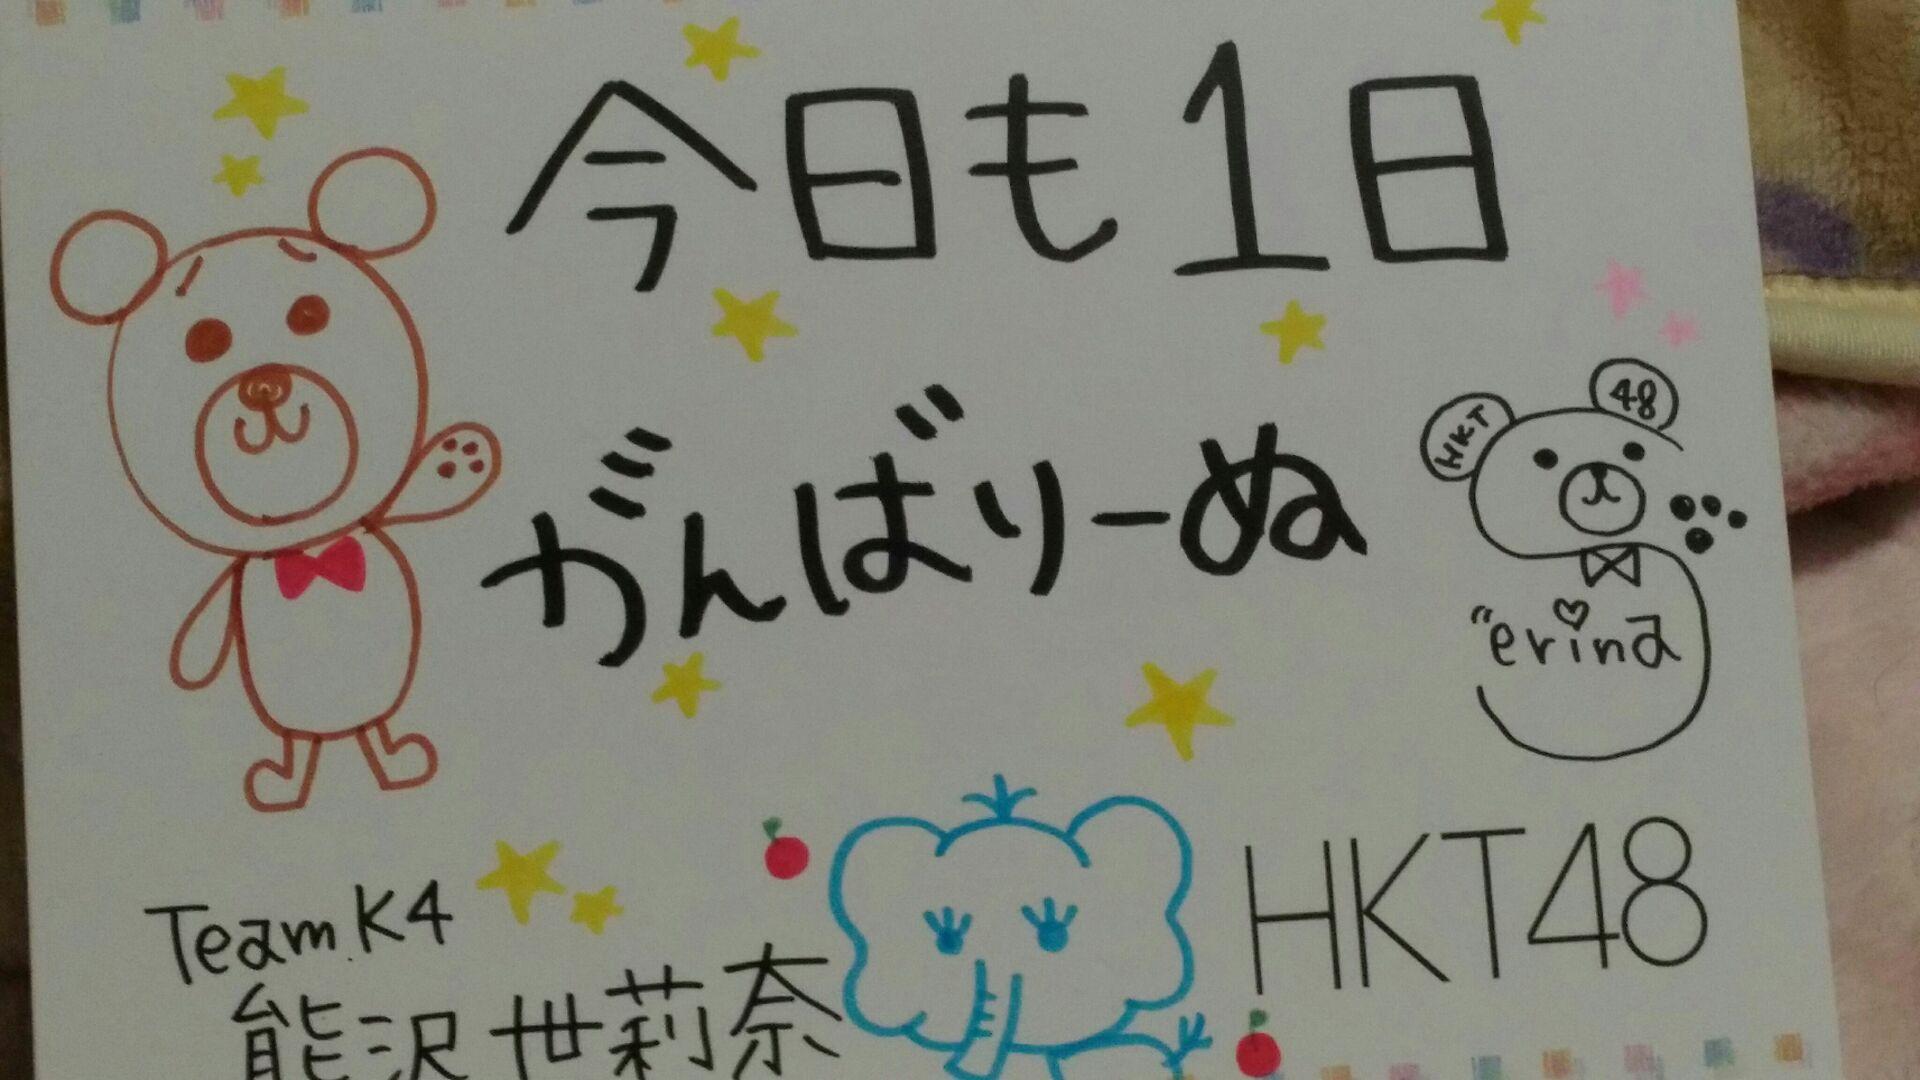 今日も1日
がんばりーぬ
HKT 48
"erina
HKT48
Team K4
熊沢世莉奈